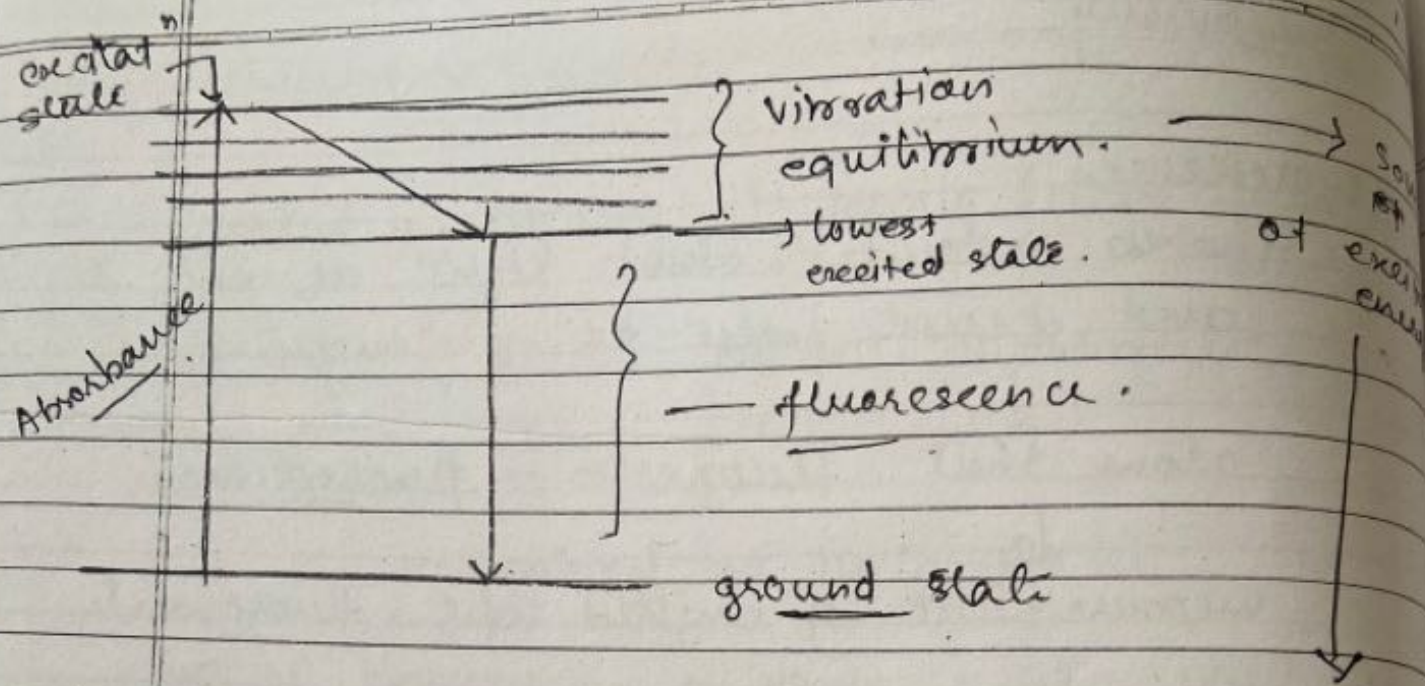 excitatⁿ
state
vibration
equilibrium.
lowest
excited state.
of
Absorbance
fluorescence.
ground state